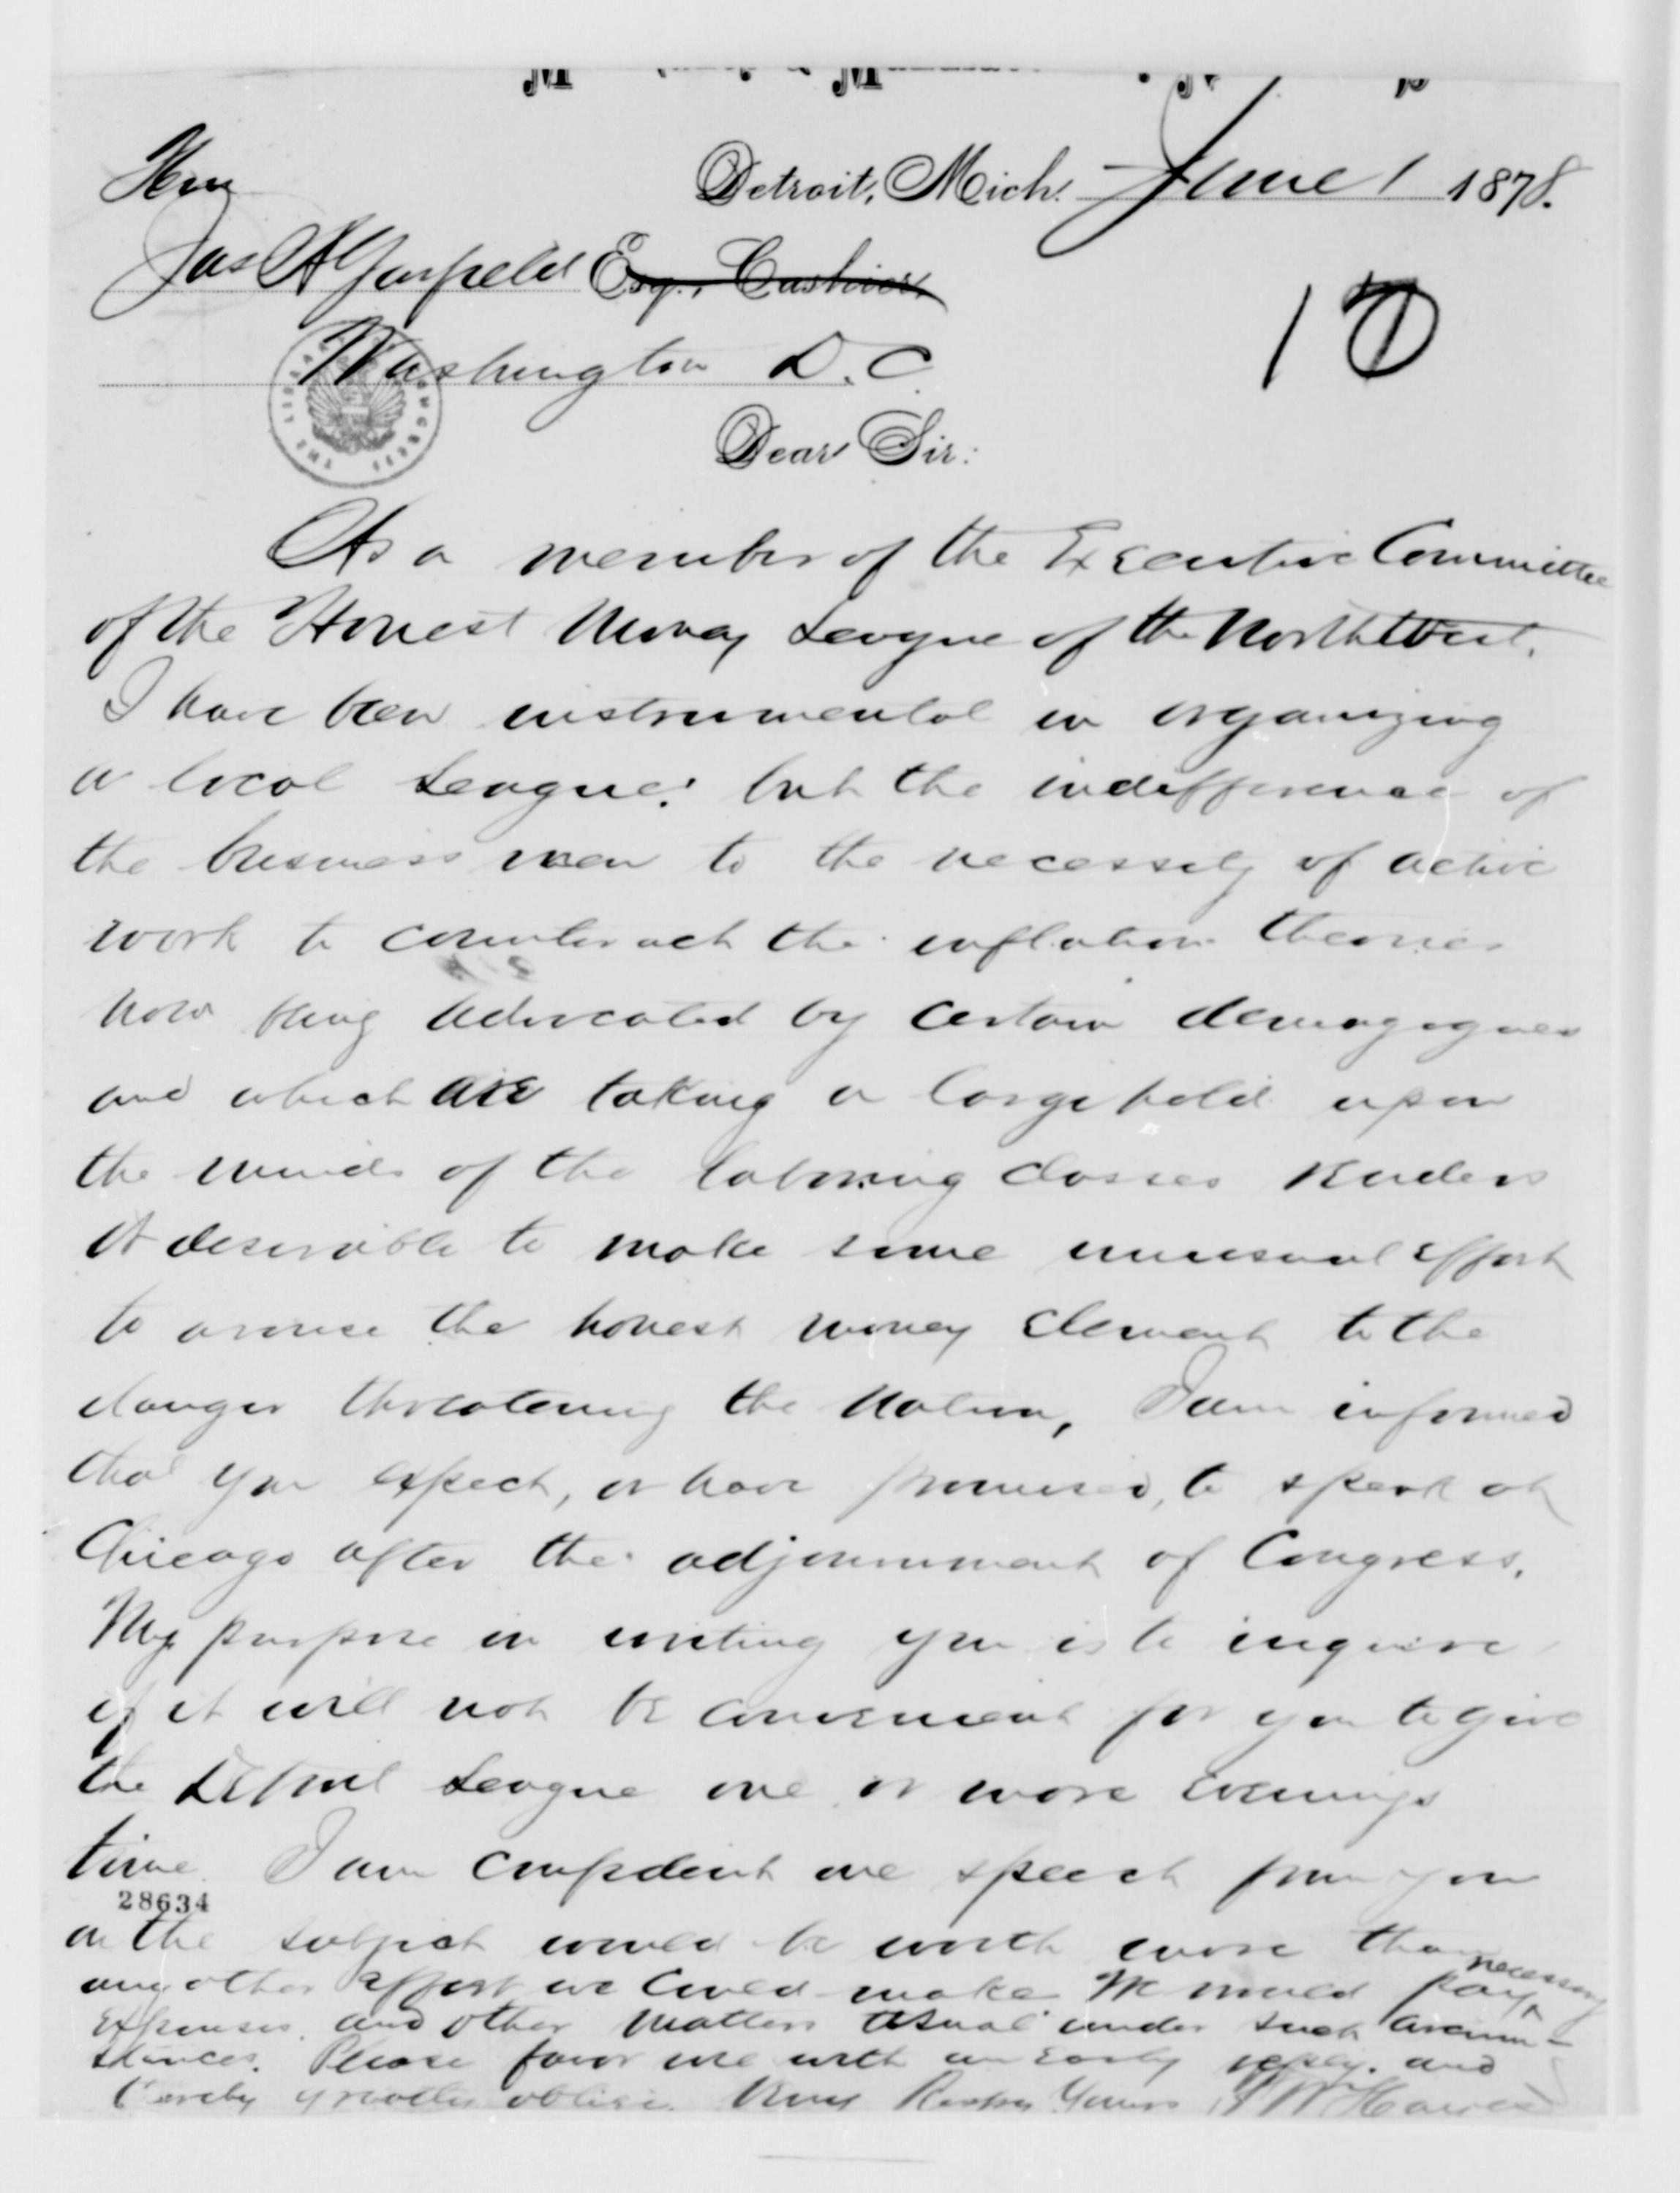 Hon
Detroit, Mich. June 1 1878.
Jas A Garfield Esq., Cashier,
10
Washington D. C.
THE LIBRARY CONGRESS
Dear Sir:
As a member of the Executive Committee
of the Honest Money League of the Northwest.
I have been instrumental in organizing
a local League: but the indifference of
the business men to the necessity of active
work to counteract the inflation theories
now being advocated by certain demagogues
and which are taking a large hold upon
the minds of the laboring classes renders
it desirable to make some unusual effort
to arouse the honest money element to the
danger threatening the Nation, I am informed
that you expect, or have promised, to speak at
Chicago after the adjournment of Congress.
My purpose in writing you is to inquire
if it will not be convenient for you to give
the Detroit League one or more evenings
time. I am confident one speech from you
28634
on the subject would be worth more than
any other effort we could make We would pay necessary
expenses. and other matters usual under such circum-
stances. Please favor me with an early reply. and
thereby greatly oblige. Very Respy Yours